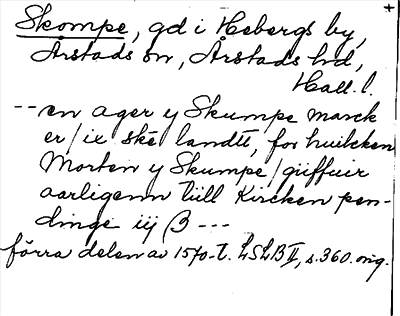 Skompe, gd i Hebergs by,
Årstads sn, Årstads hd,
Hall. l.
-- en ager y Skumpe marck
er / ix ske landtt, for huilcken
Morten y Skumpe / giiffuer
aarligenn tiill Kircken pen-
dinge iij β ---
förra delen av 1570-t. LSLB II, s. 360. orig.